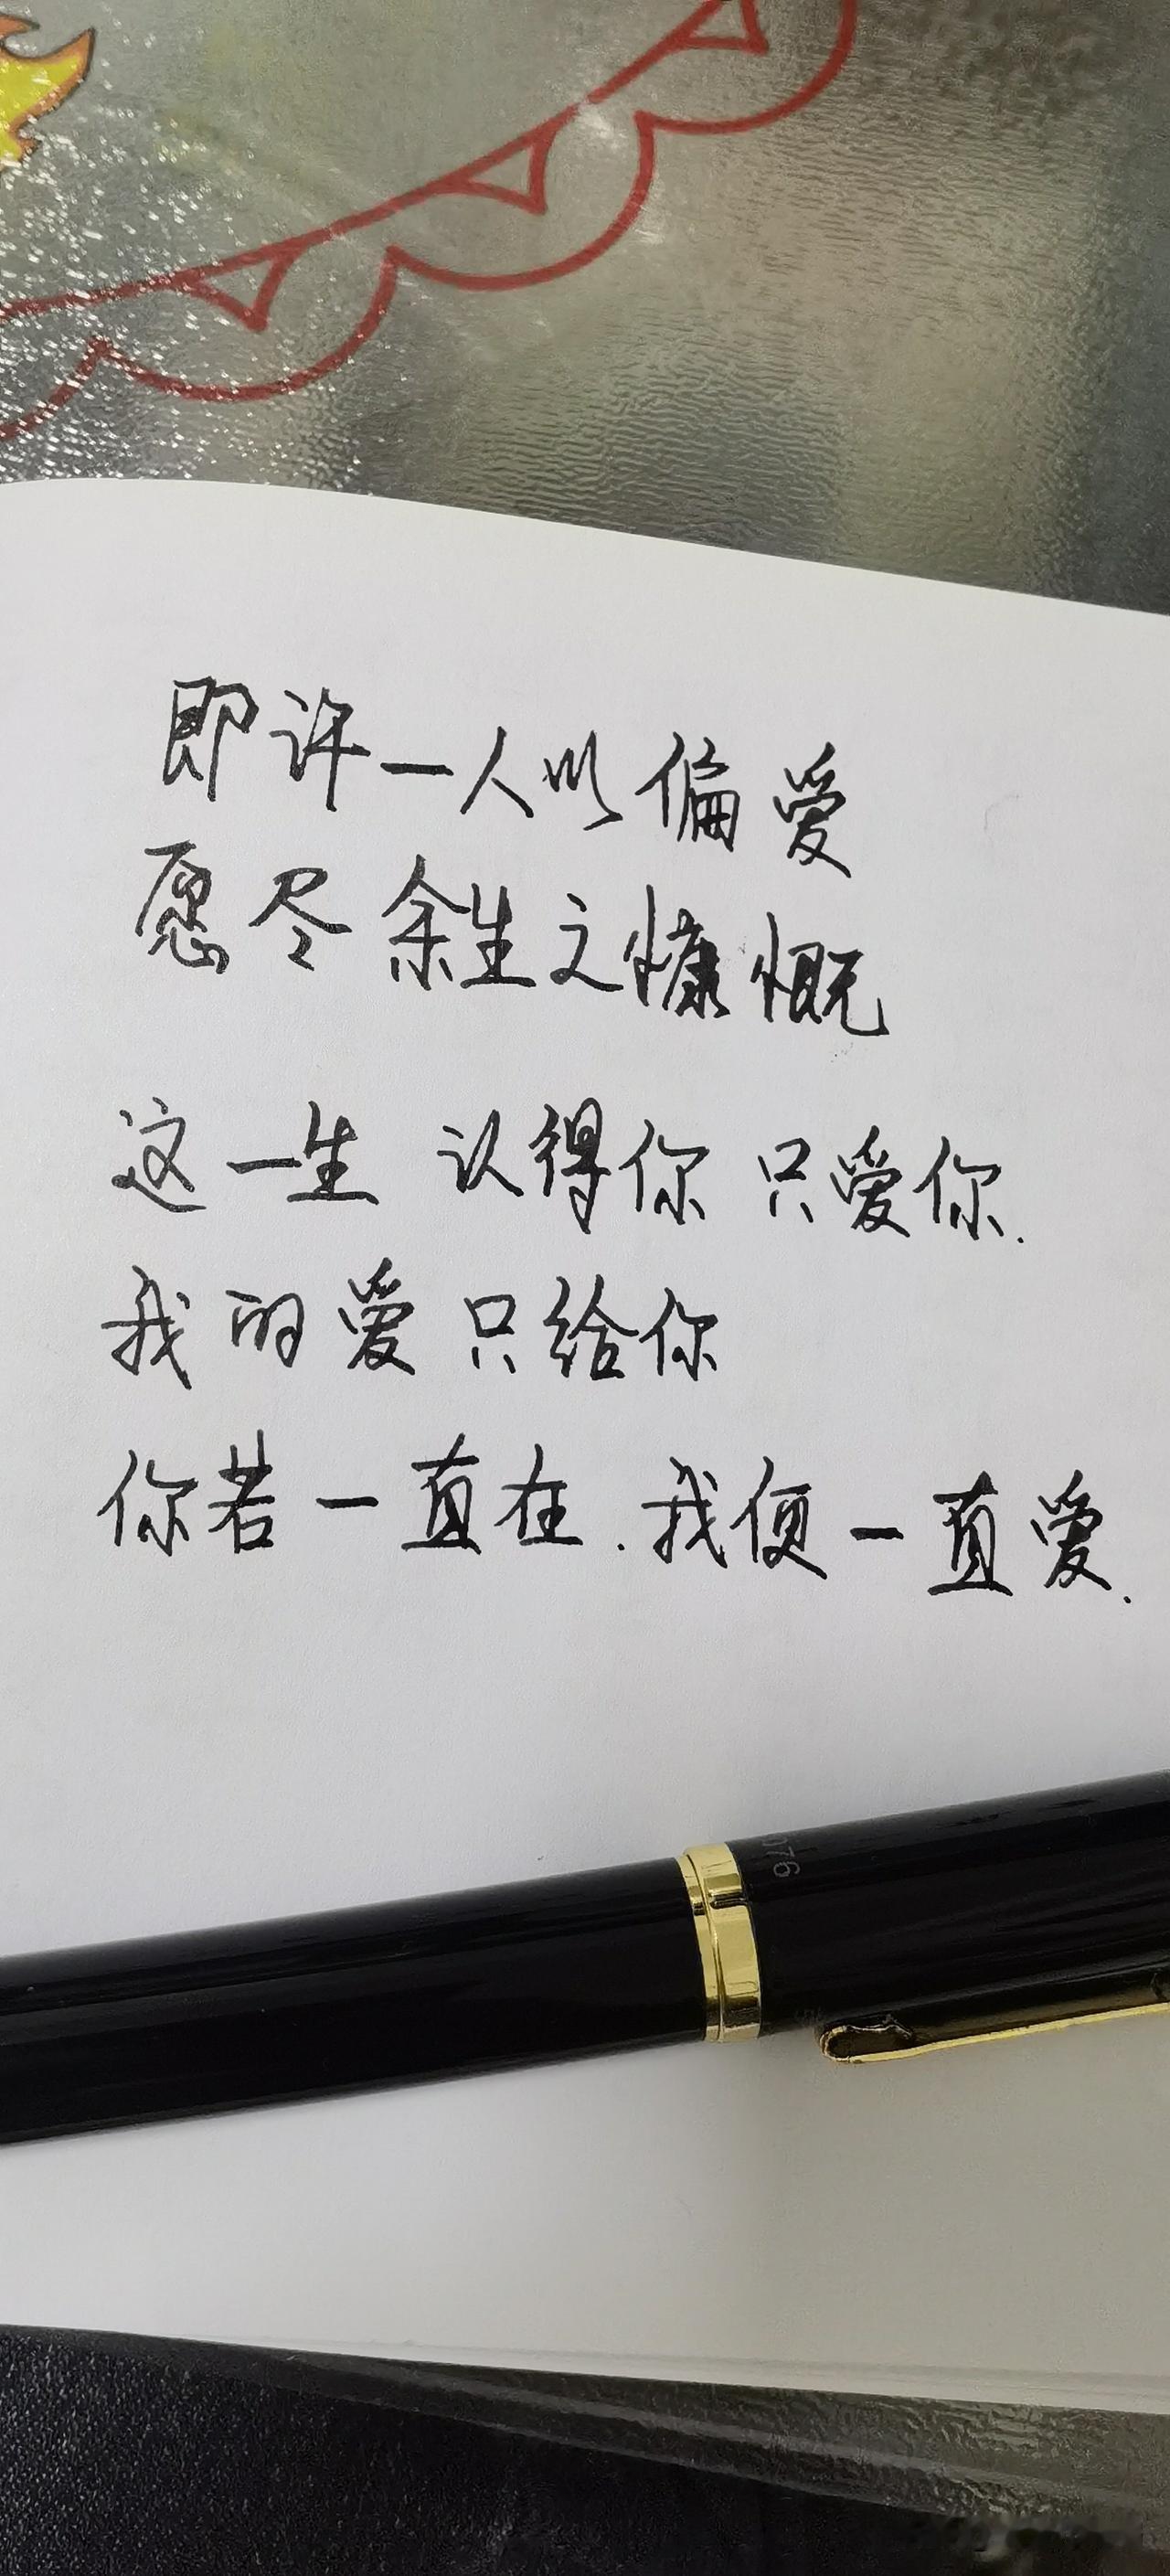 即许一人以偏爱
愿尽余生之慷慨
这一生 认得你 只爱你.
我的爱只给你
你若一直在.我便一直爱.
076